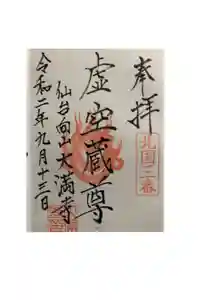 奉拝
虚空蔵尊
仙台向山大満寺
令和二年九月十三日